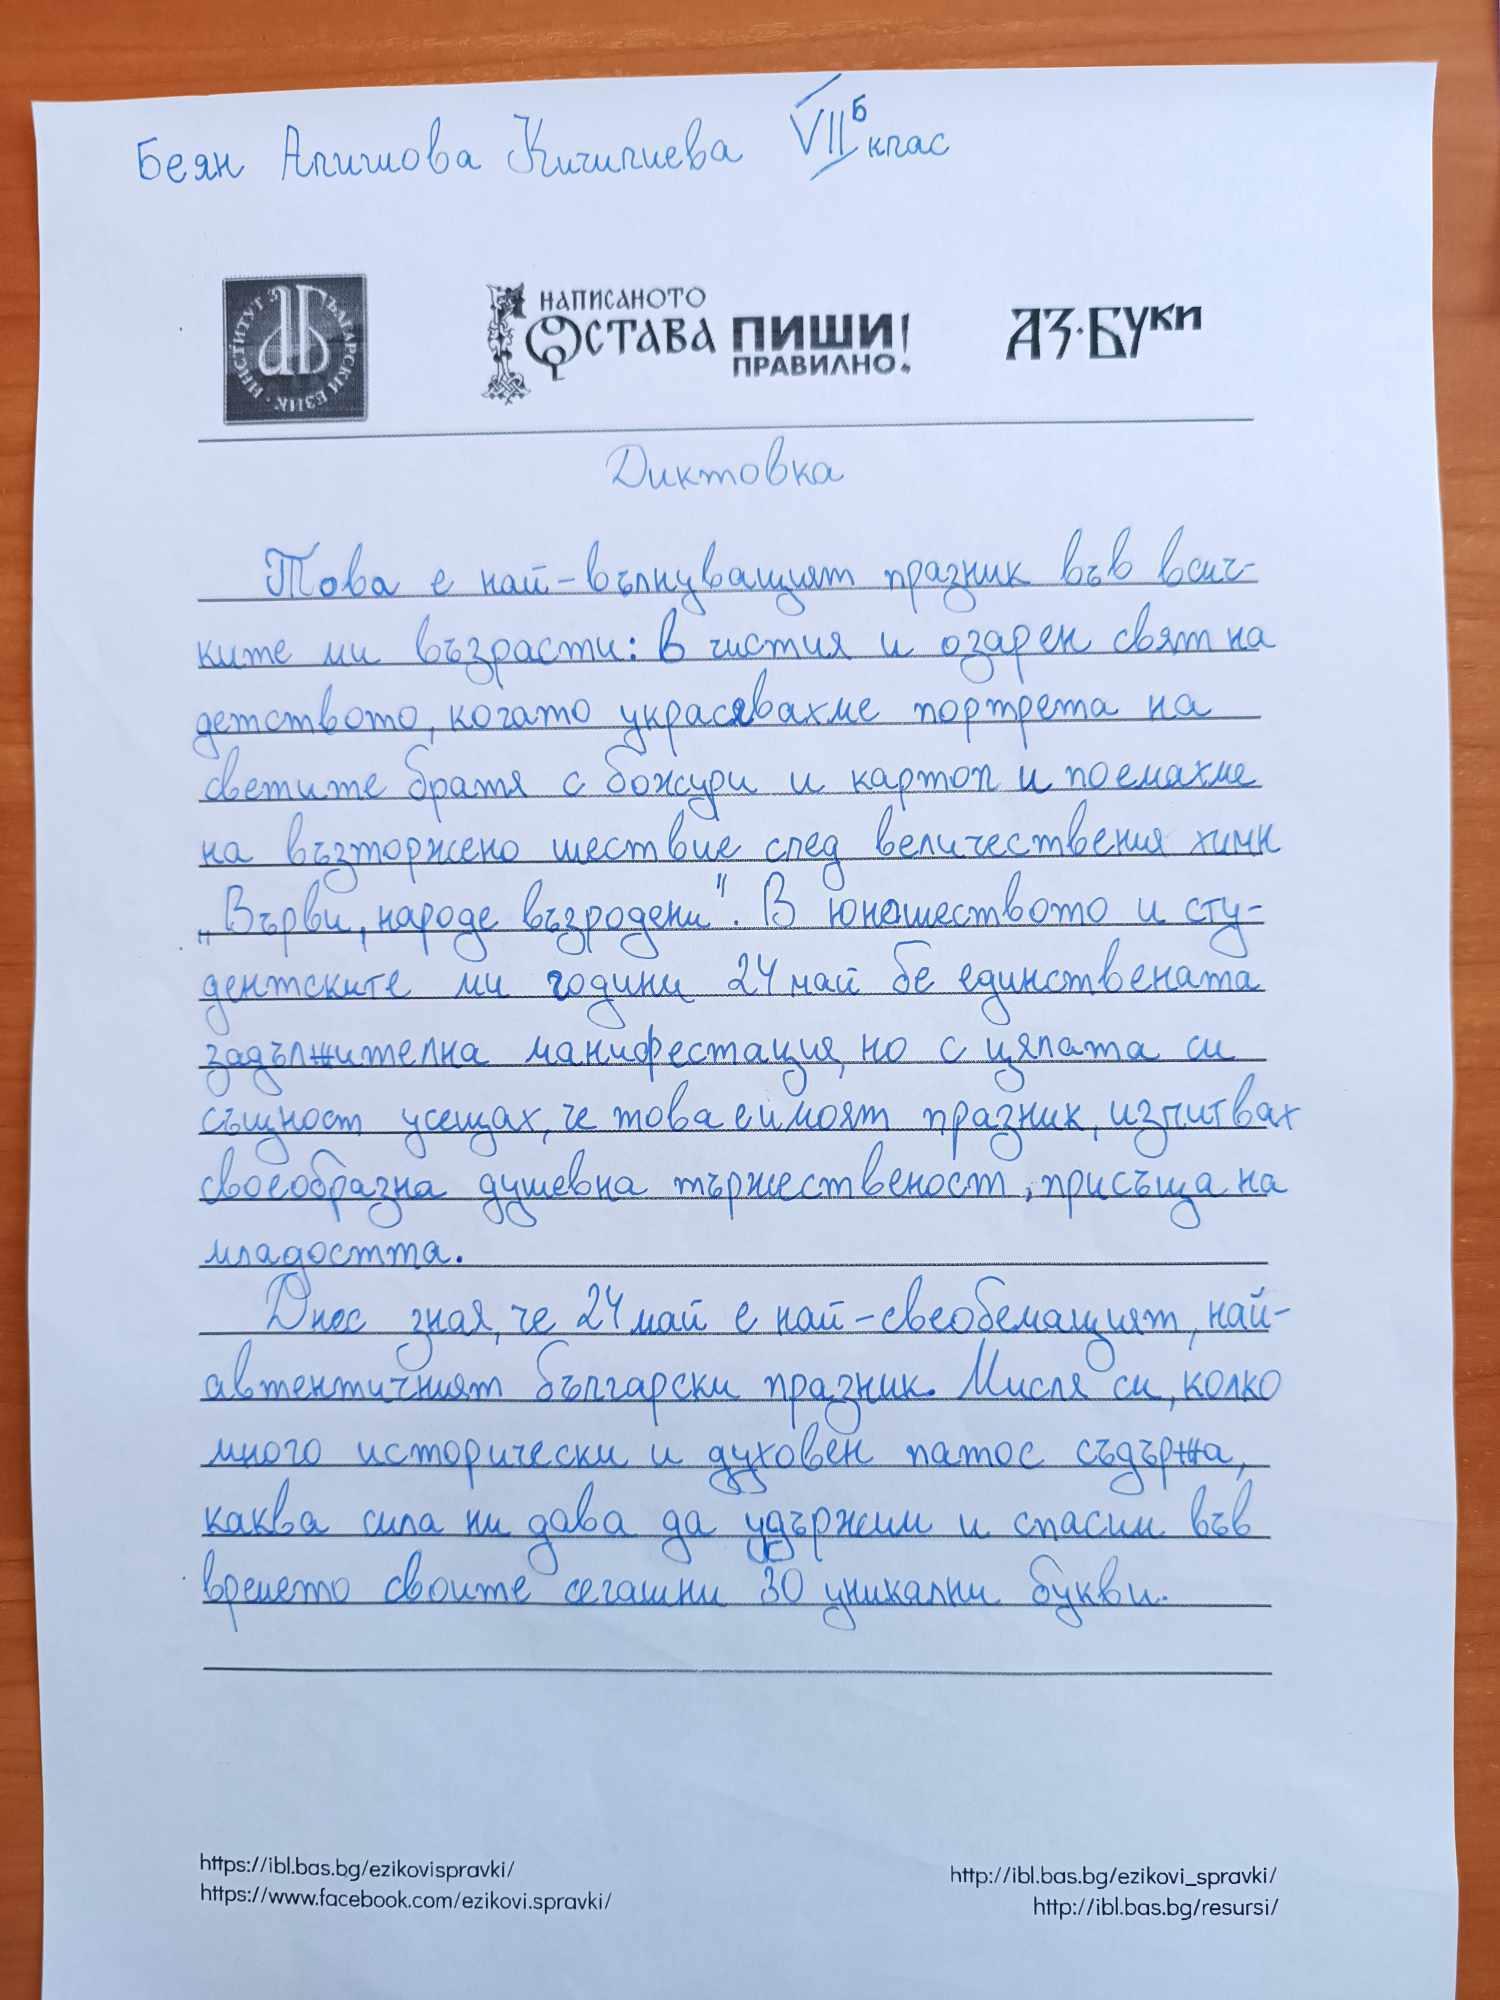 Беян Алишова Кичилиева VII б клас
ИНСТИТУТ ЗА БЪЛГАРСКИ ЕЗИК
НАПИСАНОТО
ОСТАВА ПИШИ
ПРАВИЛНО!
АЗ·БУКИ
Диктовка
Това е най-вълнуващият празник във всич-
ките ми възрасти: в чистия и озарен свят на
детството, когато украсявахме портрета на
светите братя с божури и картоп и поемахме
на възторжено шествие след величествения химн
„Върви, народе възродени". В юношеството и сту-
дентските ми години 24 май бе единствената
задължителна манифестация, но с цялата си
същност усещах, че това е и моят празник, изпитвах
своеобразна душевна тържественост, присъща на
младостта.
Днес зная, че 24 май е най-свеобемащият, най-
автентичният български празник. Мисля си, колко
много исторически и духовен патос съдържа,
каква сила ни дава да удържим и спасим във
времето своите сегашни 30 уникални букви.
https://ibl.bas.bg/ezikovispravki/
https://www.facebook.com/ezikovi.spravki/
http://ibl.bas.bg/ezikovi_spravki/
http://ibl.bas.bg/resursi/